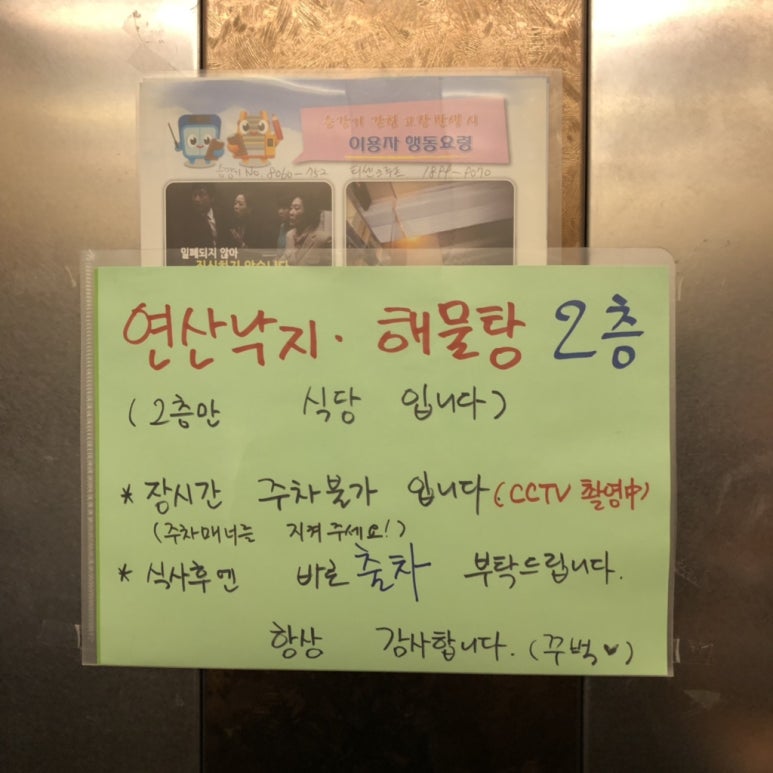 승강기 갇힘 고장 발생 시
이용자 행동요령
승강기 No. 8060-752 티센크루프 1899-8070
밀폐되지 않아
질식하지 않습니다
연산낙지. 해물탕 2층
(2층만 식당 입니다)
* 장시간 주차불가 입니다 (CCTV 촬영中)
(주차매너는 지켜주세요!)
* 식사후엔 바로 출차 부탁드립니다.
항상 감사합니다. (꾸벅♥)